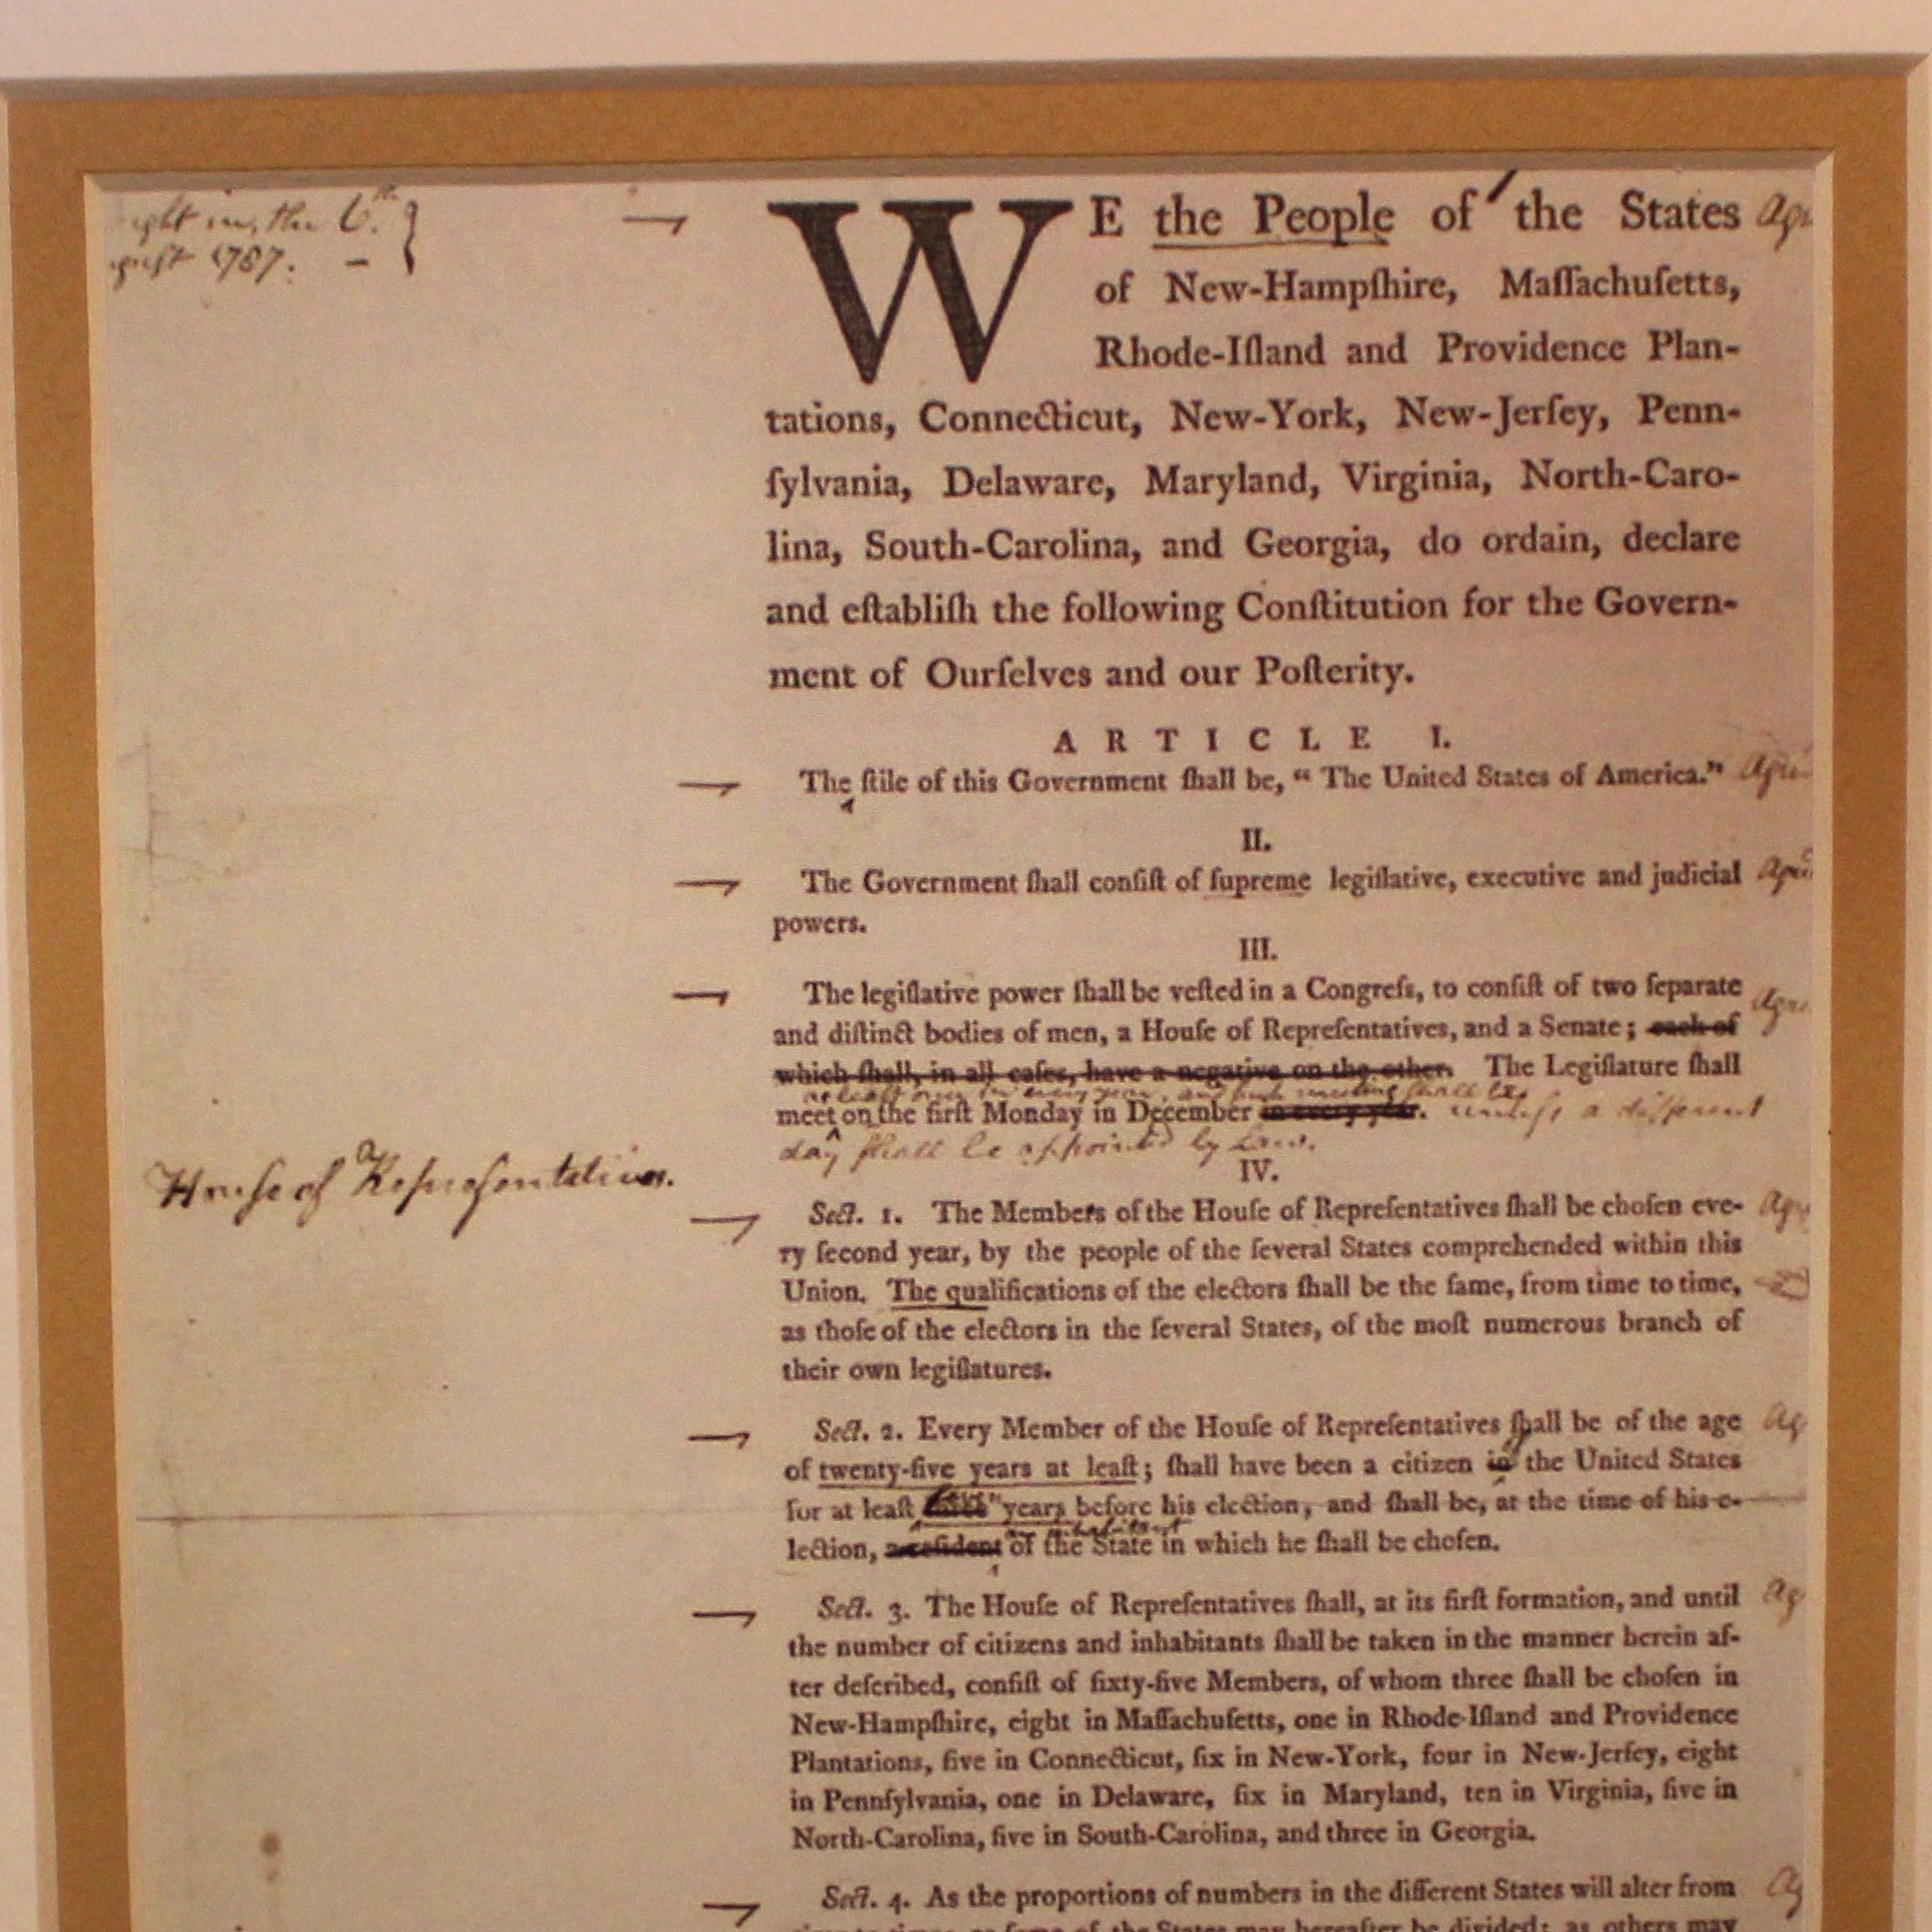 ght in, the 6.th
gust 1787. –
WE the People of the States
of New-Hampſhire, Maſſachuſetts,
Rhode-Iſland and Providence Plan-
tations, Connecticut, New-York, New-Jerſey, Penn-
ſylvania, Delaware, Maryland, Virginia, North-Caro-
lina, South-Carolina, and Georgia, do ordain, declare
and eſtabliſh the following Conſtitution for the Govern-
ment of Ourſelves and our Poſterity.
ARTICLE I.
The ſtile of this Government ſhall be, “ The United States of America.”
II.
The Government ſhall conſiſt of ſupreme legiſlative, executive and judicial
powers.
III.
The legiſlative power ſhall be veſted in a Congreſs, to conſiſt of two ſeparate
and diſtinct bodies of men, a Houſe of Repreſentatives, and a Senate; each of
which ſhall, in all caſes, have a negative on the other. The Legiſlature ſhall
at least once in every year, and such meeting shall be
meet on the firſt Monday in December in every year. unleſs a different
day ſhall be appointed by Law.
House of Repreſentatives.
IV.
Sect. 1. The Members of the Houſe of Repreſentatives ſhall be choſen eve-
ry ſecond year, by the people of the ſeveral States comprehended within this
Union. The qualifications of the electors ſhall be the ſame, from time to time,
as thoſe of the electors in the ſeveral States, of the moſt numerous branch of
their own legiſlatures.
Sect. 2. Every Member of the Houſe of Repreſentatives ſhall be of the age
of twenty-five years at leaſt; ſhall have been a citizen in the United States
for at leaſt three years before his election, and ſhall be, at the time of his e-
an inhabitant
lection, a reſident of the State in which he ſhall be choſen.
Sect. 3. The Houſe of Repreſentatives ſhall, at its firſt formation, and until
the number of citizens and inhabitants ſhall be taken in the manner herein af-
ter deſcribed, conſiſt of ſixty-five Members, of whom three ſhall be choſen in
New-Hampſhire, eight in Maſſachuſetts, one in Rhode-Iſland and Providence
Plantations, five in Connecticut, ſix in New-York, four in New-Jerſey, eight
in Pennſylvania, one in Delaware, ſix in Maryland, ten in Virginia, five in
North-Carolina, five in South-Carolina, and three in Georgia.
Sect. 4. As the proportions of numbers in the different States will alter from
time to time; as ſome of the States may hereafter be divided; as others may